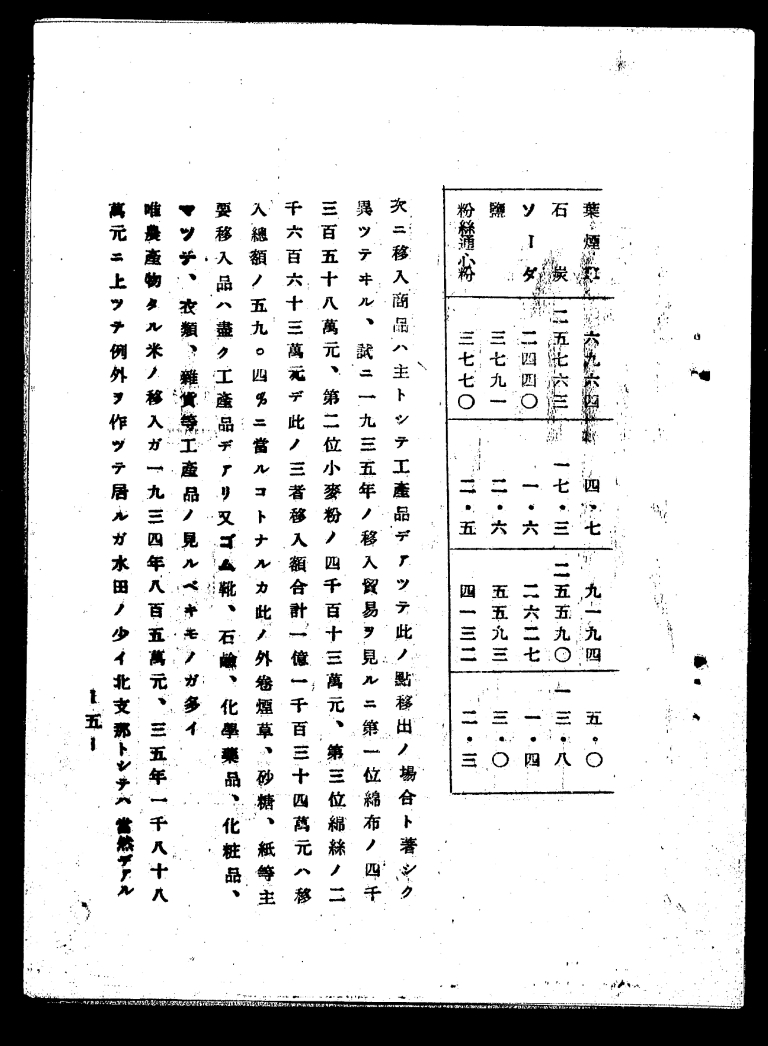 葉煙草 六九六四 四・七 九一九四 五・〇
石炭 二五七六三 一七・三 二五五九〇 一三・八
ソーダ 二四四〇 一・六 二六二七 一・四
鹽 三七九一 二・六 五五九三 三・〇
粉絲通心粉 三七七〇 二・五 四一三二 二・三
次ニ移入商品ハ主トシテ工產品デアツテ此ノ點移出ノ場合ト著シク
異ツテヰル、試ニ一九三五年ノ移入貿易ヲ見ルニ第一位綿布ノ四千
三百五十八萬元、第二位小麥粉ノ四千百十三萬元、第三位綿絲ノ二
千六百六十三萬元デ此ノ三者移入額合計一億一千百三十四萬元ハ移
入總額ノ五九。四％ニ當ルコトナルカ此ノ外卷煙草、砂糖、紙等主
要移入品ハ盡ク工產品デアリ又ゴム靴、石鹼、化學藥品、化粧品、
マツチ、衣類、雜貨等工產品ノ見ルベキモノガ多イ
唯農產物タル米ノ移入ガ一九三四年八百五萬元、三五年一千八十八
萬元ニ上ツテ例外ヲ作ツテ居ルガ水田ノ少イ北支那トシテハ當然デアル
―五―